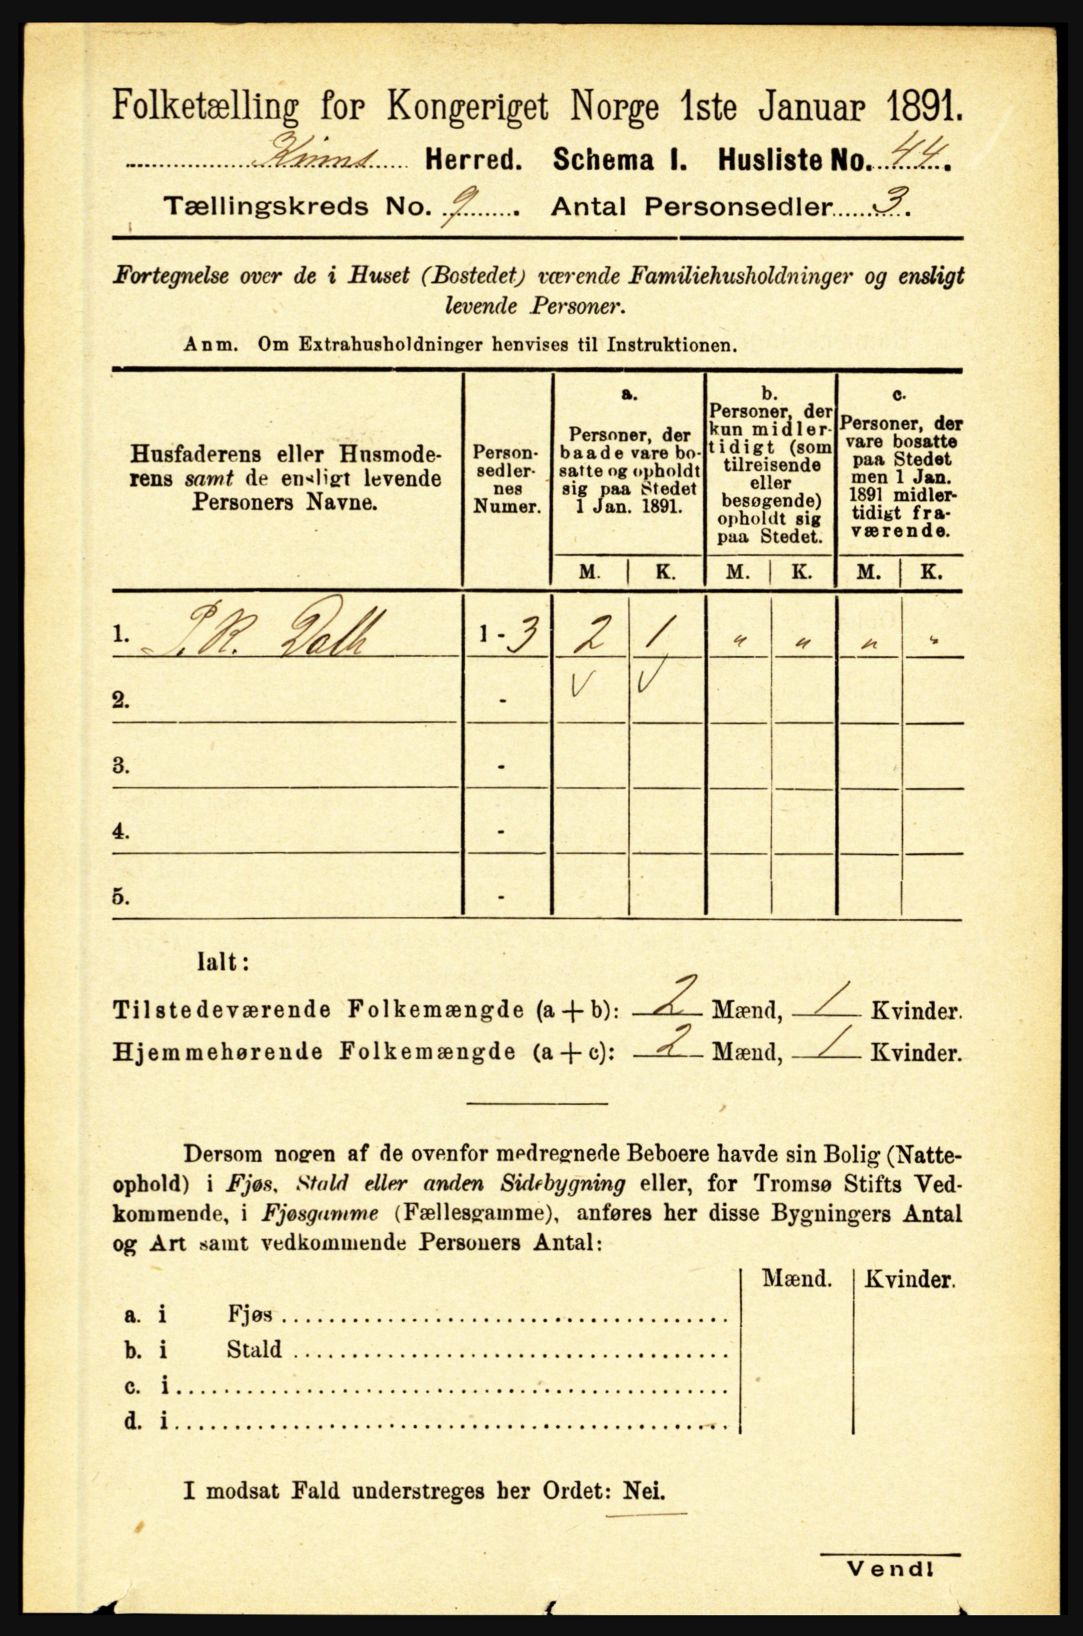 Folketælling for Kongeriget Norge 1ste Januar 1891.
Kinns Herred. Schema I. Husliste No. 44.
Tællingskreds No. 9. Antal Personsedler 3.
Fortegnelse over de i Huset (Bostedet) værende Familiehusholdninger og ensligt
levende Personer.
Anm. Om Extrahusholdninger henvises til Instruktionen.
Husfaderens eller Husmode-
rens samt de ensligt levende
Personers Navne.
Person-
sedler-
nes
Numer.
a.
Personer, der
baade vare bo-
satte og opholdt
sig paa Stedet
1 Jan. 1891.
b.
Personer, der
kun midler-
tidigt (som
tilreisende
eller
besøgende)
opholdt sig
paa Stedet.
c.
Personer, der
vare bosatte
paa Stedet
men 1 Jan.
1891 midler-
tidigt fra-
værende.
M. K. M. K. M. K.
1. P. R. Dalh 1 - 3 2 1 " " " "
2. - V V
3. -
4. -
5. -
Ialt:
Tilstedeværende Folkemængde (a + b): 2 Mænd, 1 Kvinder.
Hjemmehørende Folkemængde (a + c): 2 Mænd, 1 Kvinder.
Dersom nogen af de ovenfor medregnede Beboere havde sin Bolig (Natte-
ophold) i Fjøs, Stald eller anden Sidebygning eller, for Tromsø Stifts Ved-
kommende, i Fjøsgamme (Fællesgamme), anføres her disse Bygningers Antal
og Art samt vedkommende Personers Antal:
Mænd. Kvinder.
a. i Fjøs
b. i Stald
c. i
d. i
I modsat Fald understreges her Ordet: Nei.
Vend!